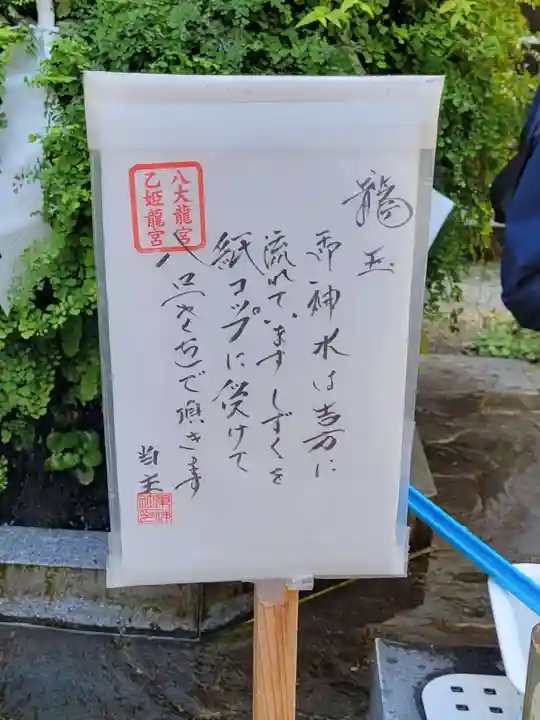 龍玉
御神水は吉方に
流れています しずくを
紙コップに受けて
八口(やくち)で頂きます
当主
八大龍宮
乙姫龍宮